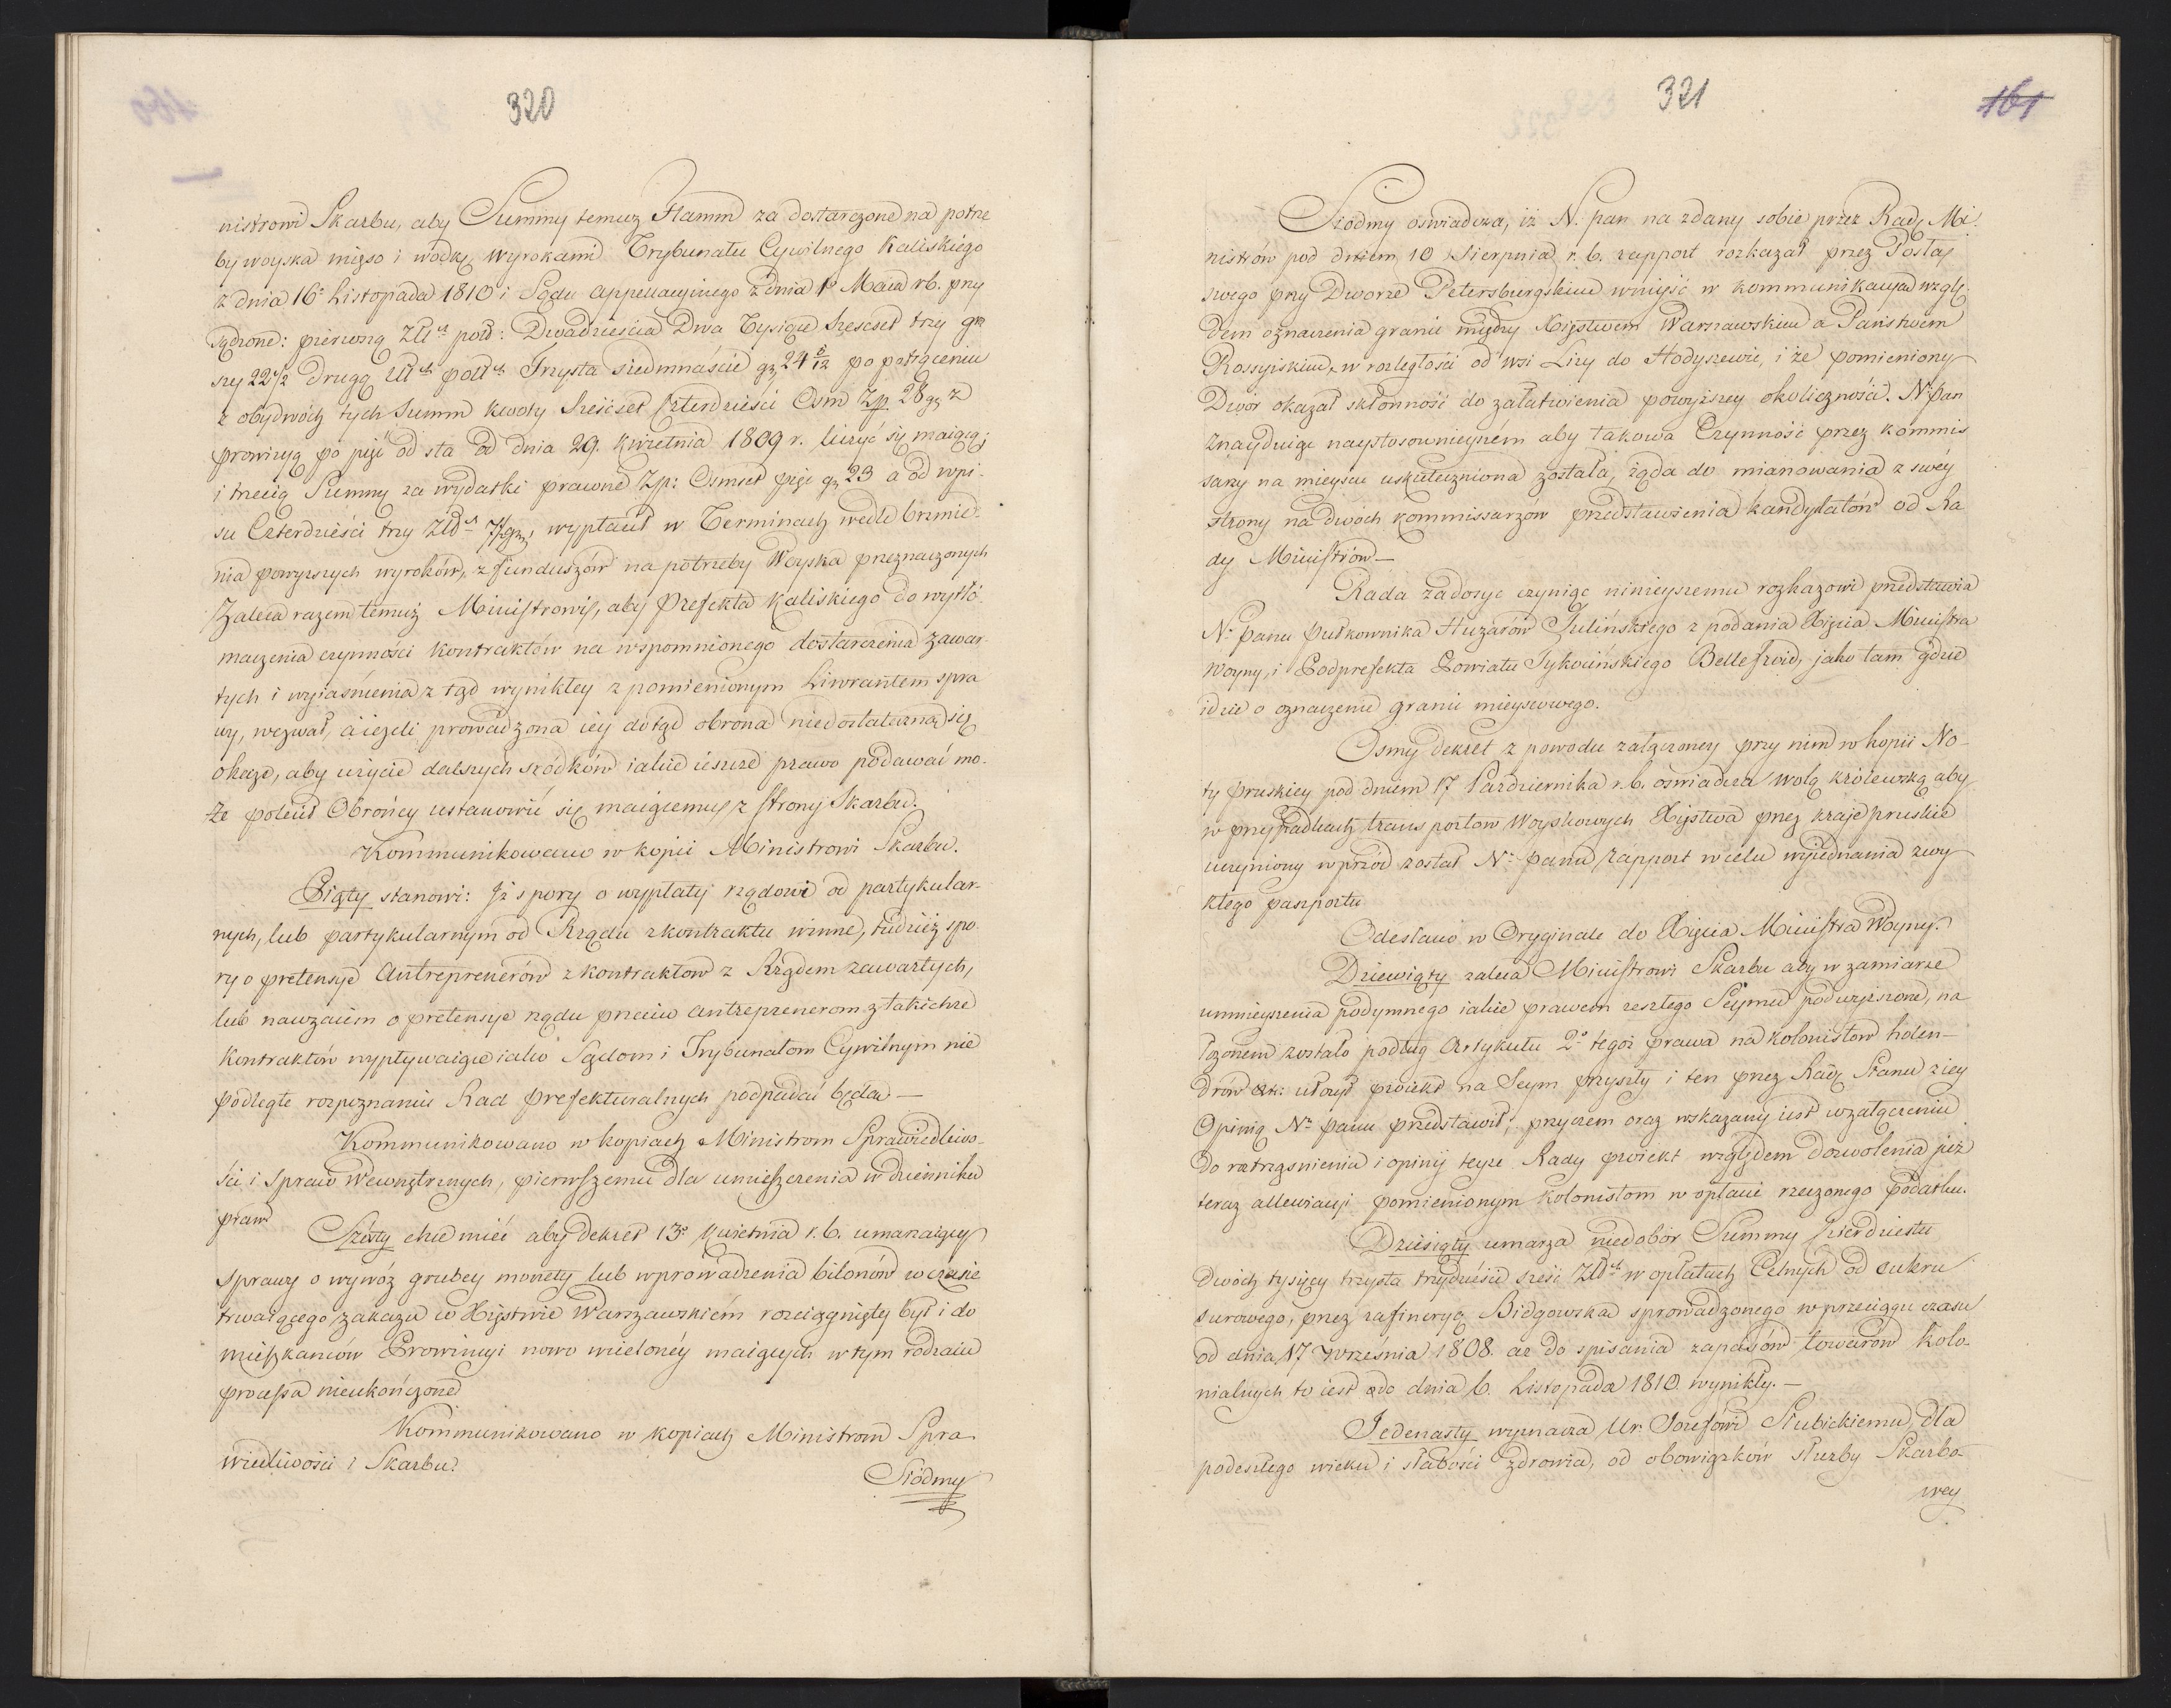 320
nistrowi Skarbu, aby Summy temuż Hamm za dostarczone na potrze
by woyska mięso i wodkę, wyrokami Trybunału Cywilnego Kaliskiego
z dnia 16º Listopada 1810 i Sądu Appellacyinego z dnia 1º Maia rb. przy
sądzone: pierwszą Złłch pols: Dwadzieścia Dwa Tysiące Sześćset trzy gr
szy 22 1/2 drugą Złłch polch Trzysta siedmnaście gr 24 5/12 po potrąceniu
z obydwóch tych Summ kwoty Sześćset Czterdzieści Osm Zp. 28 gr z
prowizyą po pięć od sta od dnia 29. Kwietnia 1809 r. liczyć się maiącą;
i trzecią Summę za wydatki prawne Zp: Osmset pięć gr 23 a od wpi-
su Czterdzieści trzy Złłch 7 1/2 gr, wypłacił w Terminach wedle brzmie-
nia powyższych wyroków, z funduszów na potrzeby Woyska przeznaczonych
Zaleca razem temuż Ministrowi, aby Prefekta Kaliskiego do wytłó-
maczenia czynności kontraktów na wspomnionego dostarczenia zawar-
tych i wyiaśnienia z tąd wynikłey z pomienionym Liwrantem spra
wy, wezwał, a ieżeli prowadzona iey dotąd obrona niedostateczną się
okaże, aby użycie dalszych sródków iakie ieszcze prawo podawać mo-
że polecił Obrońcy ustanowić się maiącemu z strony Skarbu.
Kommunikowano w kopii Ministrowi Skarbu.
Piąty stanowi: Iż spory o wypłaty rządowi od partykular-
nych, lub partykularnym od Rządu z kontraktu winne, tudzież spo
ry o pretensye Antreprenerów z kontraktów z Rządem zawartych,
lub nawzaiem o pretensye rządu przeciw antreprenerom z takichże
kontraktów wypływaiące iako Sądom i Trybunałom Cywilnym nie
podległe rozpoznaniu Rad Prefekturalnych podpadać będą —
Kommunikowano w kopiach Ministrom Sprawiedliwo-
ści i Spraw Wewnętrznych, pierwszemu dla umieszczenia w dzienniku
praw
Szósty chce mieć aby dekret 13º Kwietnia r.b. umarzaiący
sprawy o wywóz grubey monety lub wprowadzenia bilonów w czasie
trwaiącego zakazu w Xięstwie Warszawskiém rozciągnięty był i do
mieszkańców Prowincyi nowo wcieloney maiących w tym rodzaiu
processa nieukończone
Kommunikowano w kopiach Ministrom Spra-
wiedliwości i Skarbu.
Siódmy
321
161
Siódmy oświadcza, iż N. Pan na zdany sobie przez Radę Mi-
nistrów pod dniem 10 Sierpnia r. b. rapport rozkazał przez Posła
swego przy Dworze Petersburgskim wniyść w kommunikacyą wzglę-
dem oznaczenia granic między Xięstwem Warszawskim a Państwem
Rossyiskim, w rozległości od wsi Lizy do Hodyszewic, i że pomieniony
Dwór okazał skłonność do załatwienia powyższey okoliczności. N. Pan
znayduiąc naystosownieyszém aby takowa Czynność przez kommis
sarzy na mieyscu uskuteczniona została, żąda do mianowania z swéy
strony na dwóch kommissarzów przedstawienia kandydatów od Ra
dy Ministrów —
Rada zadosyć czyniąc ninieyszemu rozkazowi przedstawia
N. Panu Pułkownika Huzarów Tulińskiego z podania Xięcia Ministra
Woyny, i Podprefekta Powiatu Tykocińskiego Bellefroid, jako tam gdzie
idzie o oznaczenie granic mieyscowego.
Osmy dekret z powodu załączoney przy nim w kopii No-
ty Pruskiey pod dniem 17 Pazdziernika r.b. oświadcza wolą królewską aby
w przypadkach transportów Woyskowych Xięstwa przez kraje pruskie
uczyniony wprzód został N. Panu rapport w celu wyiednania zwy
kłego paszportu
Odesłano w Oryginale do Xięcia Ministra Woyny.
Dziewiąty zaleca Ministrowi Skarbu aby w zamiarze
umnieyszenia podymnego iakie prawem zeszłego Seymu podwyższone, na
łożonem zostało podług Artykułu 2º tegoż prawa na kolonistów holen-
drów etc: ułożył proiekt na Seym przyszły i ten przez Radę Stanu z iey
Opinią N. Panu przedstawił; przyczem oraz wskazany iest w załączeniu
do roztrząśnienia i opinii teyże Rady proiekt względem dozwolenia już
teraz allewiacyi pomienionym kolonistom w opłacie rzeczonego podatku.
Dziesiąty umarza niedobór Summy Czterdziestu
dwóch tysięcy trzysta trzydzieści sześć Złłch w opłatach Celnych od cukru
surowego, przez rafineryą Bidgowska sprowadzonego w przeciągu czasu
od dnia 17 Września 1808. aż do spisania zapasów towarów kolo-
nialnych to iest do dnia 6. Listopada 1810 wynikły. —
Jedenasty wyznacza Ur. Jozefowi Słubickiemu, dla
podeszłego wieku i słabości zdrowia, od obowiązków służby Skarbo-
wey